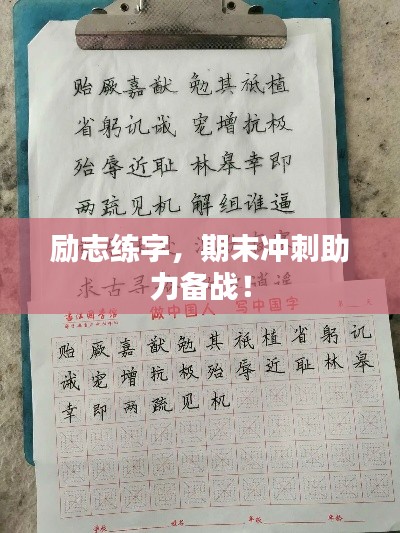 贻厥嘉猷 勉其祗植
省躬讥诫 宠增抗极
殆辱近耻 林皋幸即
两疏见机 解组谁逼
求古寻
逍遥
励志练字，期末冲刺助
力备战！
做中国人 写中国字
贻厥嘉猷勉其祗植省躬讥
诫宠增抗极殆辱近耻林皋
幸即两疏见机